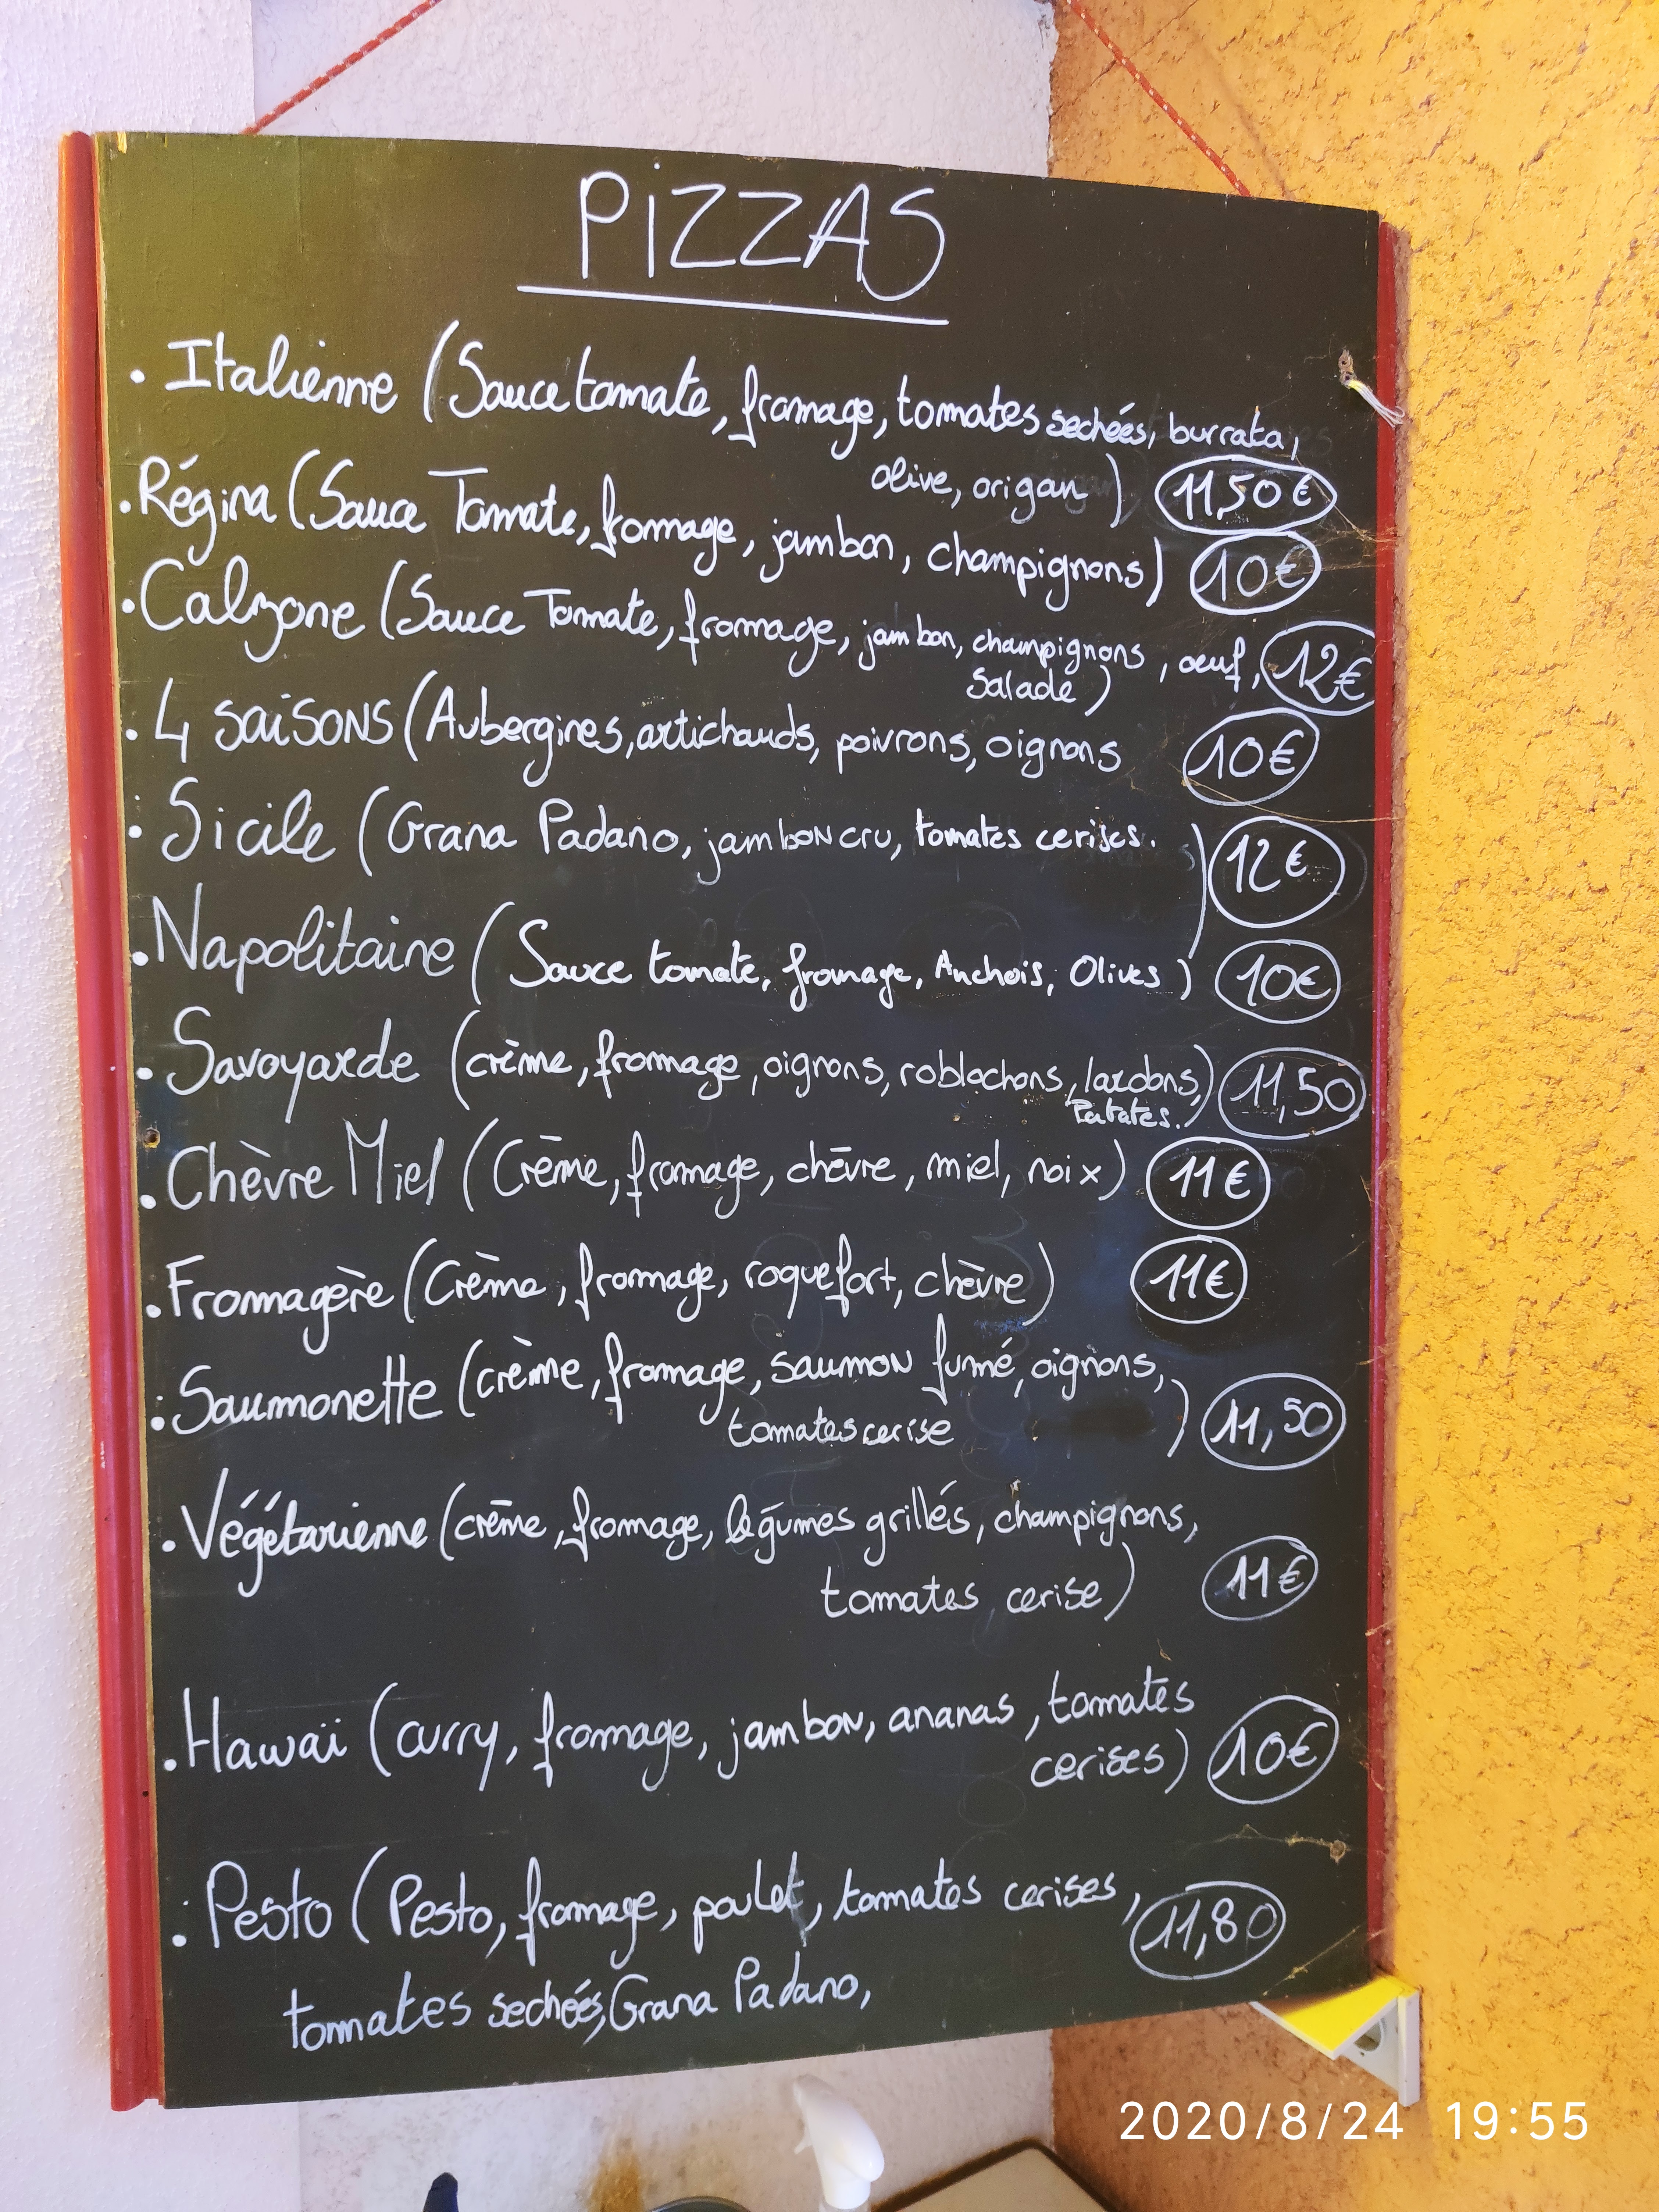 PiZZAS
. Italienne (Sauce tomate, fromage, tomates sechées, burrata,
olive, origan) 11,50 €
. Régina (Sauce Tomate, fromage, jambon, champignons) 10€
. Calzone (Sauce Tomate, fromage, jambon, champignons, oeuf, 12€
Salade)
. 4 saisons (Aubergines, artichauds, poivrons, oignons 10€
: Sicile (Grana Padano, jambon cru, tomates cerises. ) 12€
. Napolitaine (Sauce tomate, fromage, Anchois, Olives) 10€
. Savoyarde (crème, fromage, oignons, roblochons, lardons,) 11,50
Patates.
. Chèvre Miel (Crème, fromage, chèvre, miel, noix) 11€
. Fromagère (Crème, fromage, roquefort, chèvre) 11€
: Saumonette (crème, fromage, saumon fumé, oignons,
tomates cerise ) 11,50
. Végétarienne (crème, fromage, légumes grillés, champignons,
tomates cerise) 11€
. Hawaï (curry, fromage, jambon, ananas, tomates
cerises) 10€
: Pesto (Pesto, fromage, poulet, tomates cerises, 11,80
tomates sechées, Grana Padano,
2020/8/24 19:55